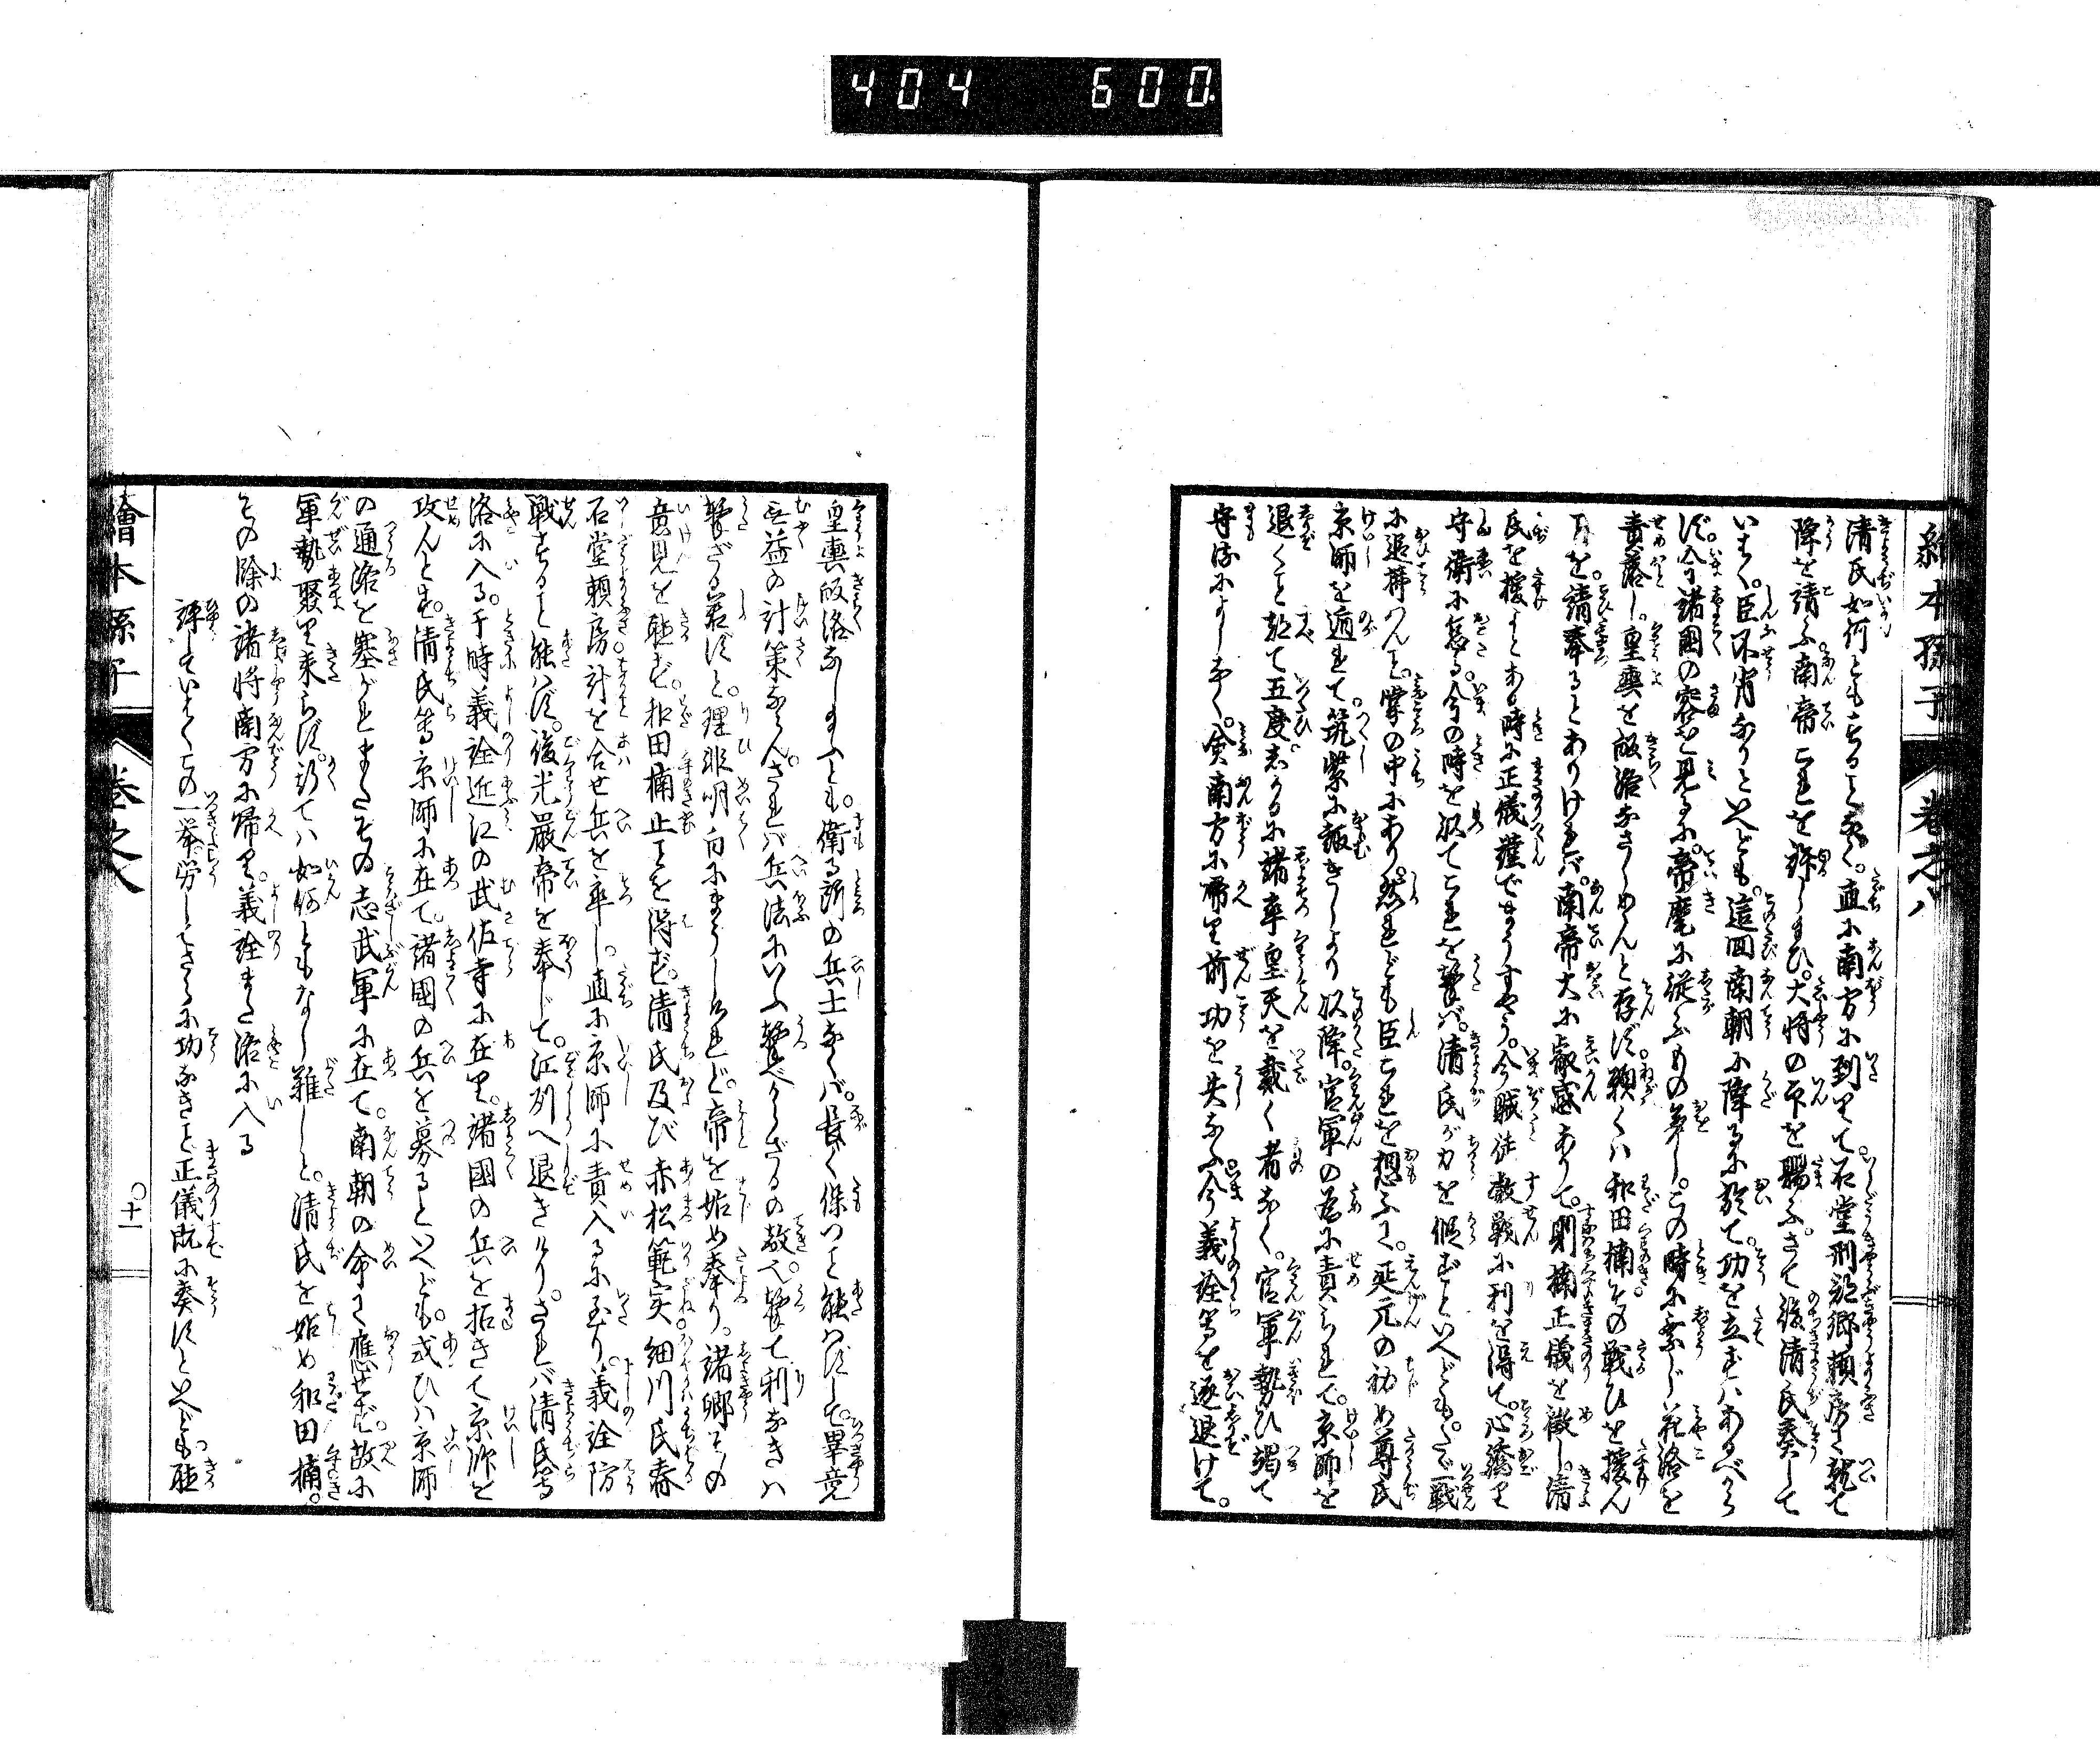 404 600
絵本孫子 巻之八
清氏如何ともすることなく。直に南方に到りて。石堂刑部卿頼房に就て
降を請ふ南帝これを許しまひ。大将の印を賜ふ。さて後清氏奏して
いはく。臣不肖なりといへども。這回南朝に降るに於て。功を立ずはあるべから
ず。今諸國の容を見るに。帝麾に従ふもの多し。この時に乗じ花洛を
責落し。皇輿を皈洛なさしめんと存ず。願くは和田楠その戦ひを援ん
を。請奉るとありければ。南帝大に叡感ありて。則楠正儀を徴し。清
氏を援よとある時に正儀謹でまうすやう。今賊徒数戦に利を得て。心驕り
守衛に怠る。今の時を以てこれを撃ば。清氏が力を假ずといへども。たゞ一戦
に追掃はんと。掌の中にあり。然れども臣これを想ふに。延元の初め尊氏
京師を遁れて。筑紫に趣きしより以降。官軍の為に責られて。京師を
退くこと都て五度。しかるに諸卒皇天を戴く者なく。官軍勢ひ竭て
守ふによしなく。矣南方に帰り前功を失なふ今義詮等を逐退けて。
皇輿皈洛なしまふとも。衛る所の兵士なくば。長く保つこと能はずして。畢竟
無益の計策ならん。されば兵法にいふ撃べからざるの敵へ撃て利なきは
撃ざる若ずと。理非明白にまうしければ。帝を始め奉り。諸卿その
意見を聴ず。和田楠止ことを得ず。清氏及び赤松範実細川氏春
石堂頼房計を合せ兵を率し。直に京師に責入るに至り。義詮防
戦すること能はず。後光嚴帝を奉じて。江州へ退きけり。されば清氏等
洛に入る。于時義詮近江の武佐寺に在り。諸國の兵を招きて京師を
攻んとす。清氏等京師に在て。諸國の兵を募るといへども。或ひは京師
の通路を塞がれまたその志武軍に在て。南朝の命に應ぜず。故に
軍勢聚り来らず。斯ては如何ともなし難しと。清氏を始め和田楠。
その除の諸将南方に帰り。義詮また洛に入る
評していはくこの一挙。労してさらに功なきを正儀既に奏すといへども。聴
繪本孫子 巻之八 〇十一